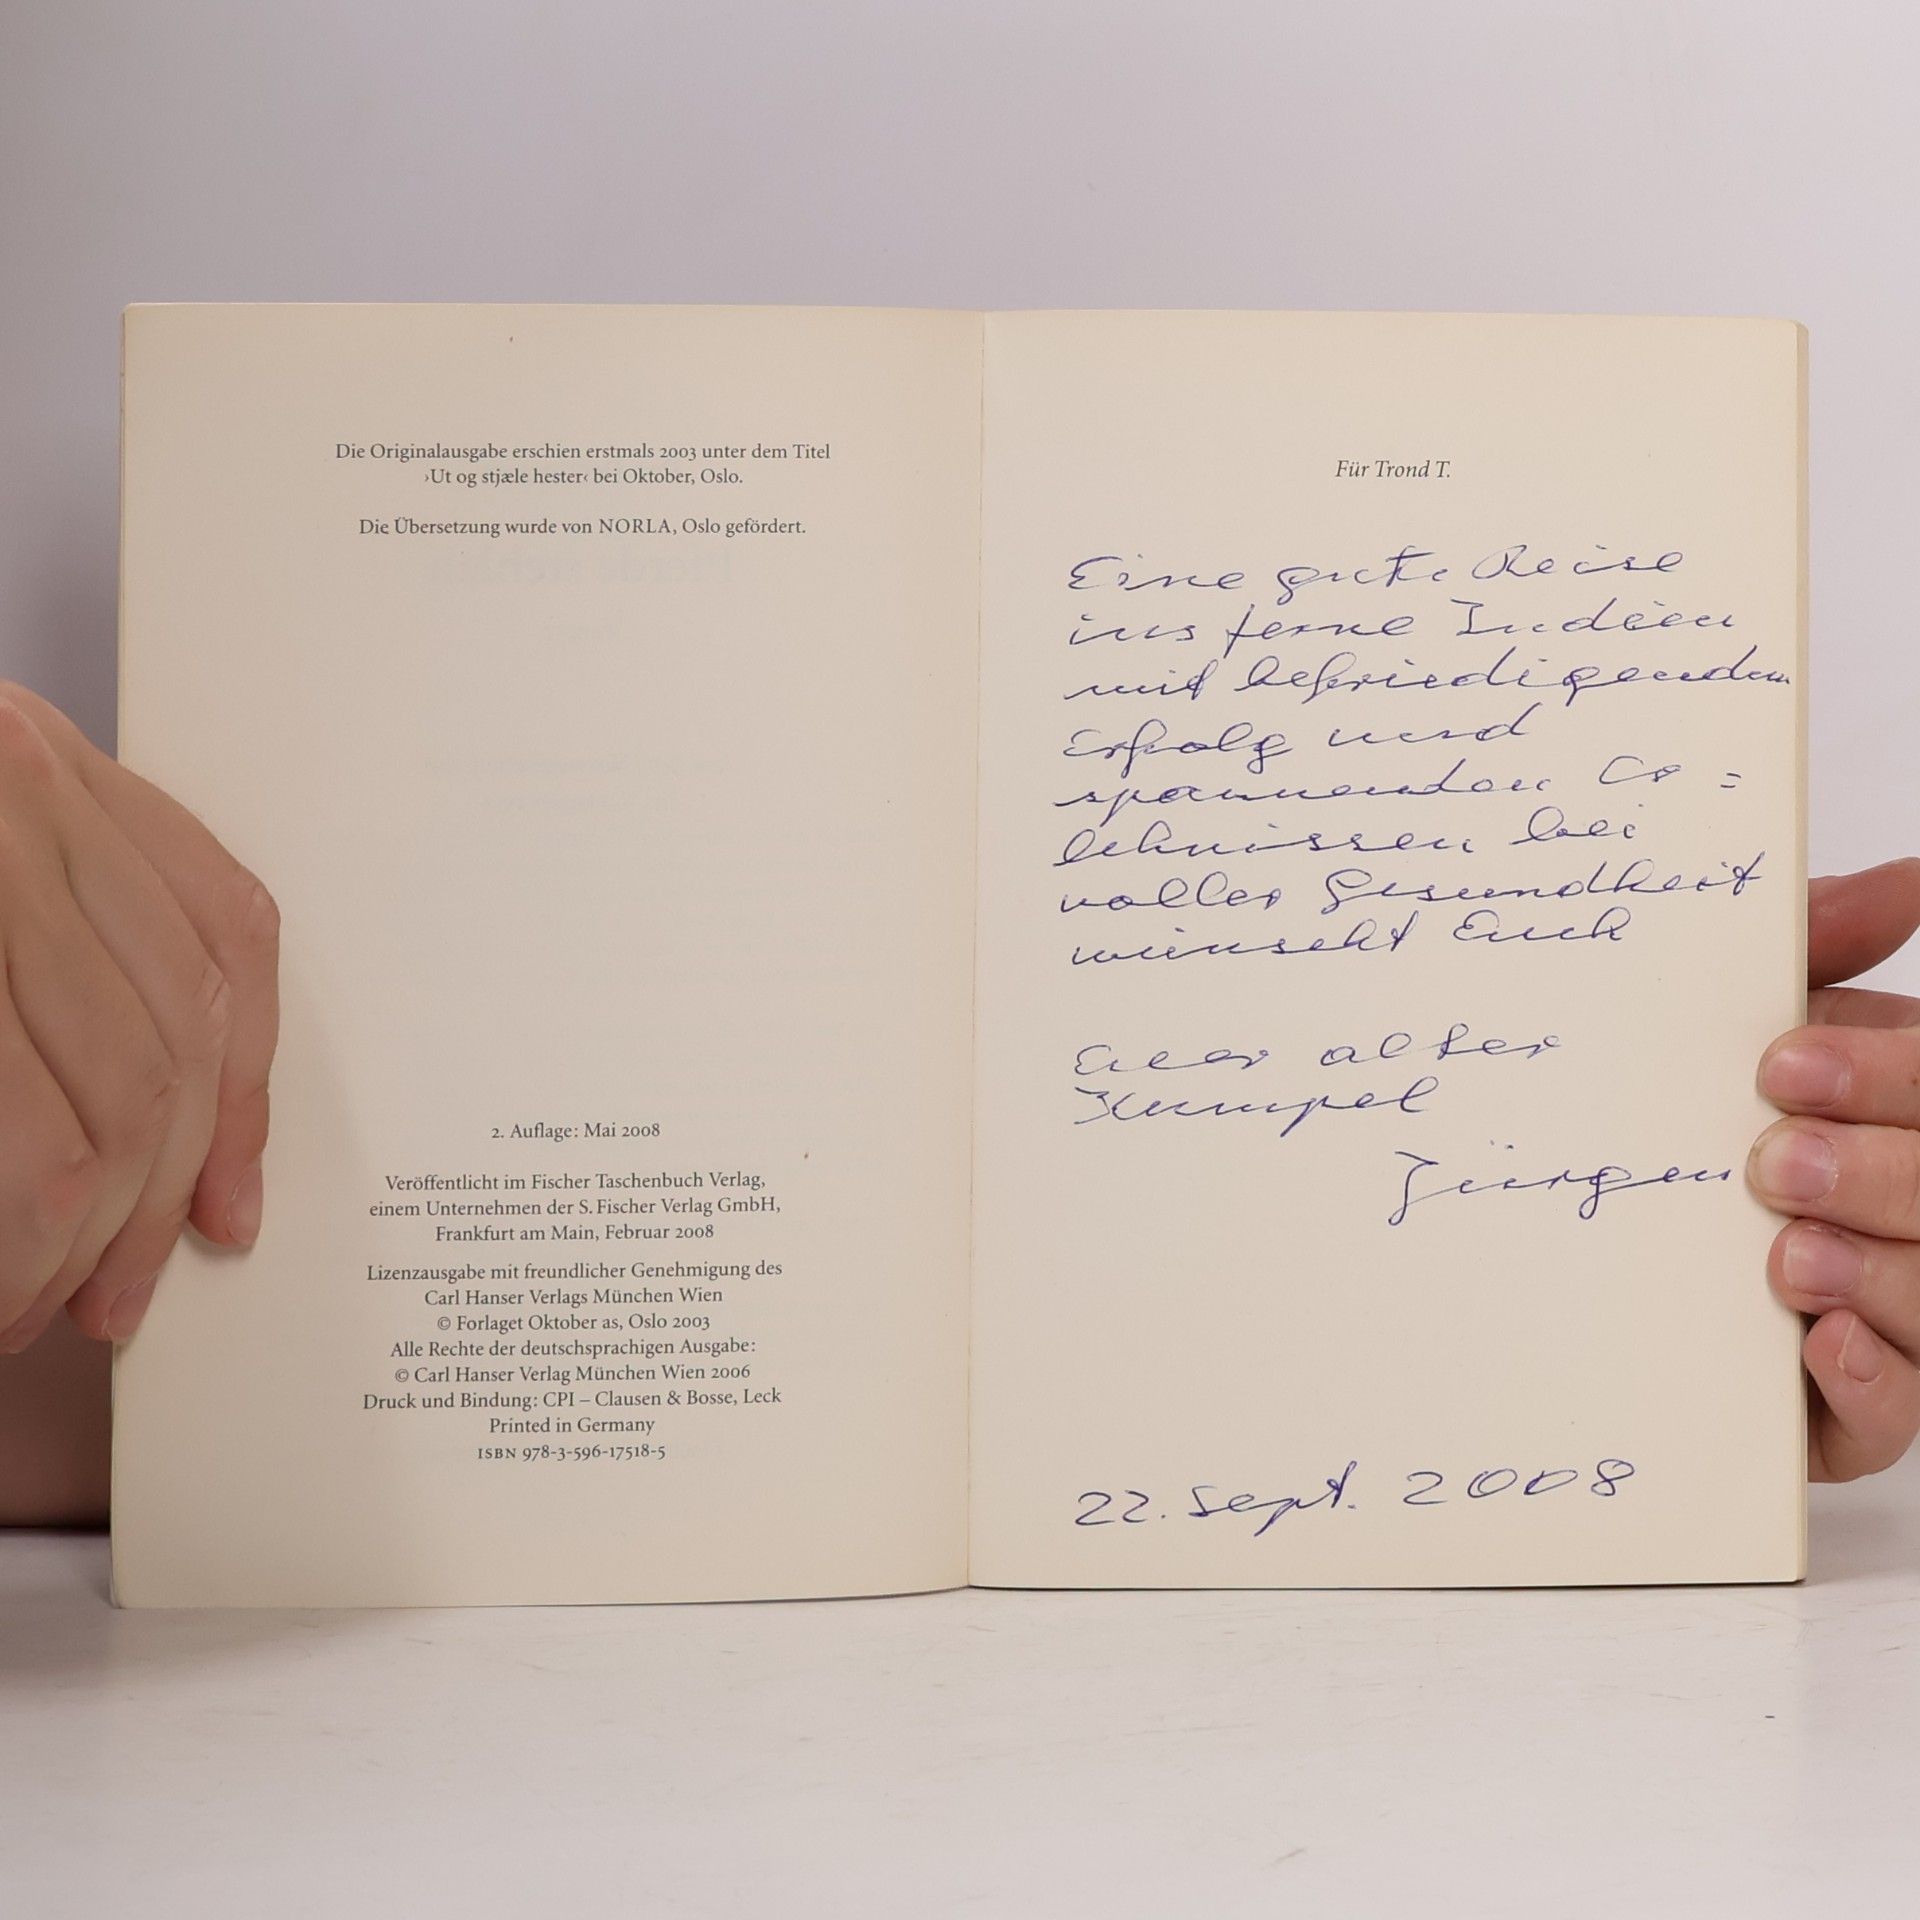 Die Originalausgabe erschien erstmals 2003 unter dem Titel
›Ut og stjæle hester‹ bei Oktober, Oslo.
Die Übersetzung wurde von NORLA, Oslo gefördert.
2. Auflage: Mai 2008
Veröffentlicht im Fischer Taschenbuch Verlag,
einem Unternehmen der S. Fischer Verlag GmbH,
Frankfurt am Main, Februar 2008
Lizenzausgabe mit freundlicher Genehmigung des
Carl Hanser Verlags München Wien
© Forlaget Oktober as, Oslo 2003
Alle Rechte der deutschsprachigen Ausgabe:
© Carl Hanser Verlag München Wien 2006
Druck und Bindung: CPI – Clausen & Bosse, Leck
Printed in Germany
ISBN 978-3-596-17518-5
Für Trond T.
Eine gute Reise
ins ferne Indien
mit befriedigendem
Erfolg und
spannenden Er=
lebnissen bei
voller Gesundheit
wünscht Euch
Euer alter
Kumpel
Jürgen
22. Sept. 2008